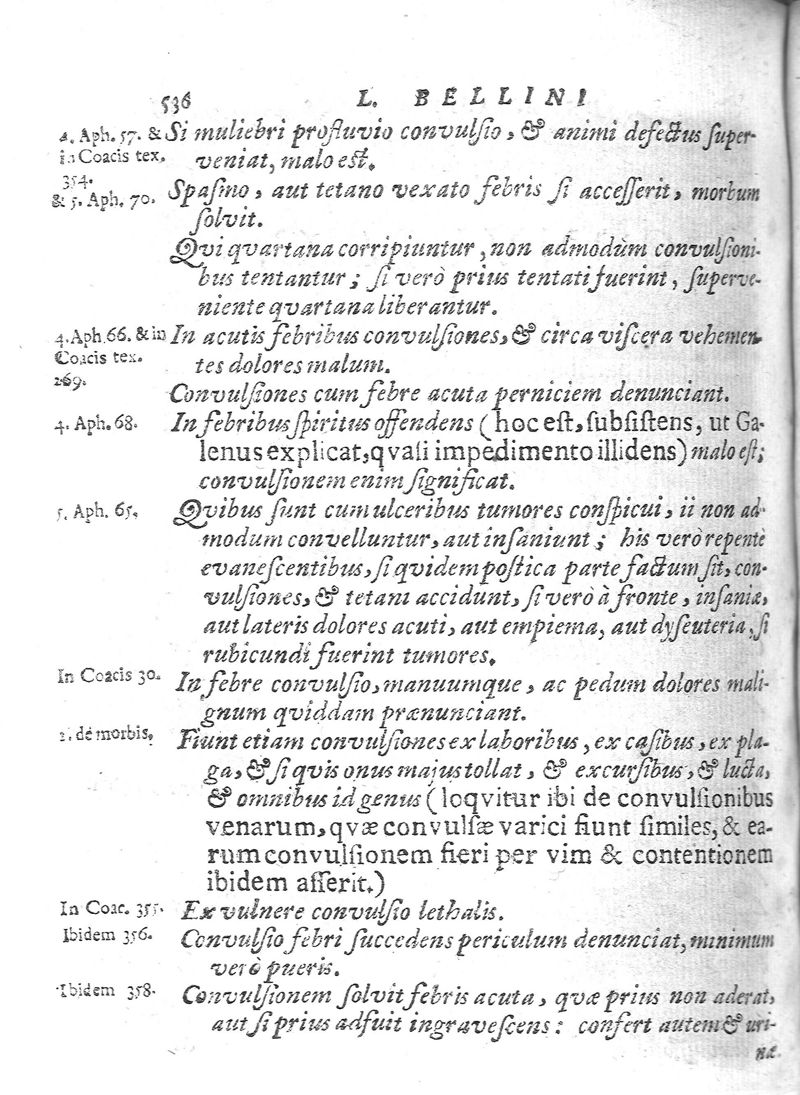 536 L. BELLINI
4. Aph. 57. & Si muliebri profluvio convulsio, & animi defectus super-
in Coacis tex. veniat, malo est.
354.
& 5. Aph. 70. Spasmo, aut tetano vexato febris si accesserit, morbum
solvit.
Qvi qvartana corripiuntur, non admodùm convulsioni-
bus tentantur; si verò prius tentati fuerint, superve-
niente qvartana liberantur.
4. Aph. 66. & in In acutis febribus convulsiones, & circa viscera vehemen-
Coacis tex. tes dolores malum.
269.
Convulsiones cum febre acuta perniciem denunciant.
4. Aph. 68. In febribus spiritus offendens (hoc est, subsistens, ut Ga-
lenus explicat, qvasi impedimento illidens) malo est;
convulsionem enim significat.
5. Aph. 65. Qvibus sunt cum ulceribus tumores conspicui, ii non ad-
modum convelluntur, aut insaniunt; his verò repentè
evanescentibus, si qvidem postica parte factum sit, con-
vulsiones, & tetani accidunt, si verò à fronte, insaniæ,
aut lateris dolores acuti, aut empiema, aut dyseuteria, si
rubicundi fuerint tumores.
In Coacis 30. In febre convulsio, manuumque, ac pedum dolores mali-
gnum qviddam prænunciant.
2. de morbis. Fiunt etiam convulsiones ex laboribus, ex casibus, ex pla-
ga, & si qvis onus majus tollat, & excursibus, & lucta,
& omnibus id genus (loqvitur ibi de convulsionibus
venarum, qvæ convulsæ varici fiunt similes, & ea-
rum convulsionem fieri per vim & contentionem
ibidem asserit.)
In Coac. 355. Ex vulnere convulsio lethalis.
Ibidem 356. Convulsio febri succedens periculum denunciat, minimum
verò pueris.
Ibidem 358. Convulsionem solvit febris acuta, qvæ prius non aderat,
aut si prius adfuit ingravescens: confert autem & uri-
næ